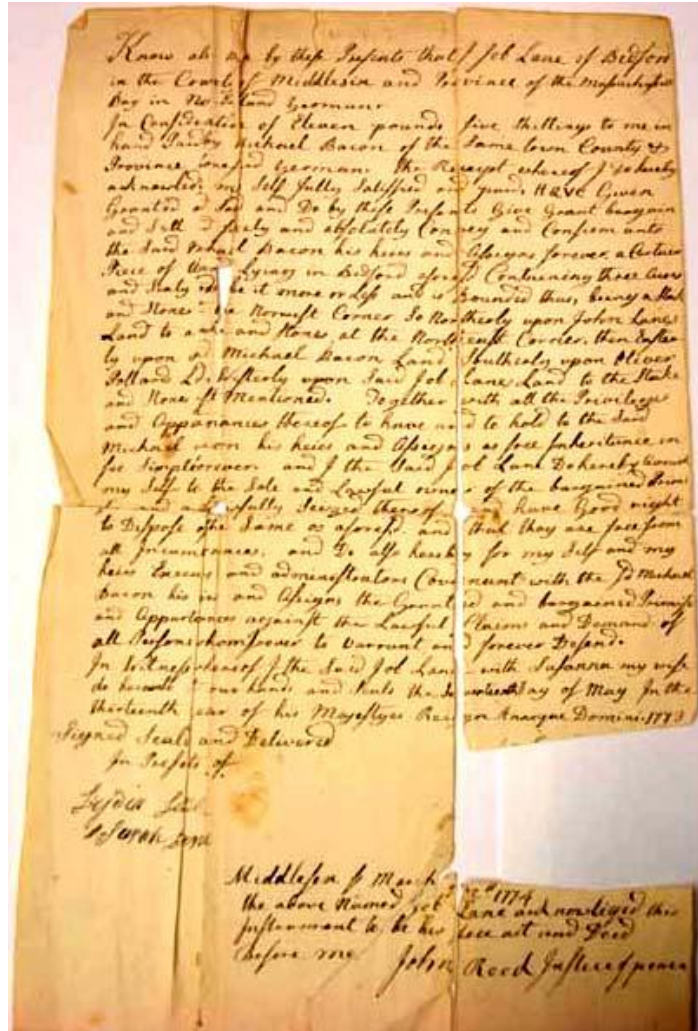 Know all me by these Presents that I Job Lane of Bedford
in the County of Middlesex and Province of the Massachusetts
Bay in New England Yeoman
In Consideration of Eleven pounds five shillings to me in
hand Paid by Michael Bacon of the Same town County &
Province Yeoman the Receipt whereof I do hereby
acknowledg my Self fully Sattisfied and have Given
Granted Sold and Do by these Presents Give Grant bargain
and Sell freely and absolutely Convey and Confirm unto
the Said Michael Bacon his heirs and Assigns forever a Certain
Piece of Lying in Bedford Containing three Acres
and be it more or Less and is Bounded thus, being a Stake
and Stones the Norwest Corner So Northerly upon John Lanes
Land to a and Stones at the Northeast Corner, then Easter
ly upon sd Michael Bacon Land Southerly upon Oliver
Pollard Ld. Westerly upon Said Job Lane Land to the Stake
and Stones Mentioned. Together with all the Privileges
and thereof to have and to hold to the Said
Michael Bacon his heirs and Assigns as free Inheritance in
fee Simple forever and I the Said Job Lane Do hereby
my Self to the Sole and Lawful owner of the bargained
and Lawfully Seized thereof and have Good right
to Dispose of the Same as and that they are free from
all and Do also hereby for my Self and my
heirs and administrators Covenant with the sd Michael
Bacon his and Assigns the Granted and bargained
and against the Lawful Claims and Demand of
all Persons whomsoever to Warrant and forever Defend.
In Witness whereof I the Said Job Lane with Susanna my wife
do our hands and the Day of May In the
thirteenth year of his Majestyes Reign Annoque Domini 1773
Signed Seald and Delivered
In of
Lydia
Sarah Lane
Middlesex March 1774
the above Named Job Lane acknowledged this
Insterment to be his free act and Deed
Before me John Reed Justice of peace